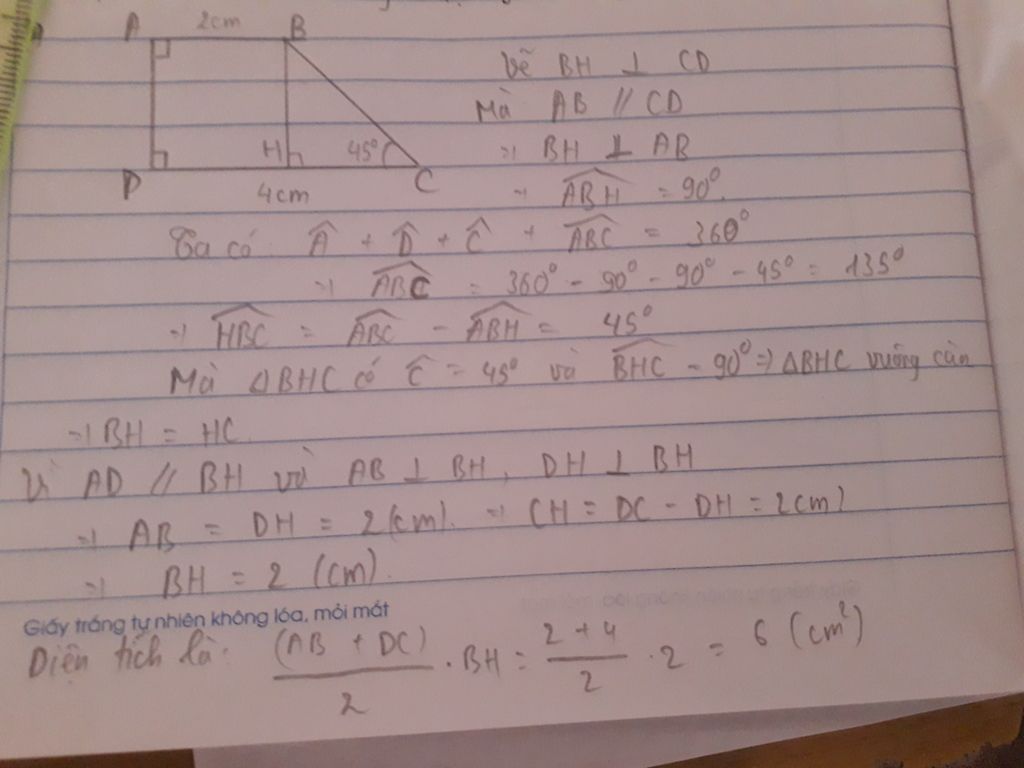 A 2cm B
Vẽ BH ⊥ CD
Mà AB // CD
H 45°
⇒ BH ⊥ AB
D 4cm C
⇒ \widehat{ABH} = 90°.
Ta có \hat{A} + \hat{D} + \hat{C} + \widehat{ABC} = 360°
⇒ \widehat{ABC} = 360° - 90° - 90° - 45° = 135°
⇒ \widehat{HBC} = \widehat{ABC} - \widehat{ABH} = 45°
Mà ΔBHC có \hat{C} = 45° và \widehat{BHC} = 90° ⇒ ΔBHC vuông cân
⇒ BH = HC
Vì AD // BH và AB ⊥ BH, DH ⊥ BH
⇒ AB = DH = 2 (cm). ⇒ CH = DC - DH = 2cm)
⇒ BH = 2 (cm).
Giấy trắng tự nhiên không lóa, mỏi mát
Diện tích là: \frac{(AB + DC)}{2} . BH = \frac{2 + 4}{2} . 2 = 6 (cm²)